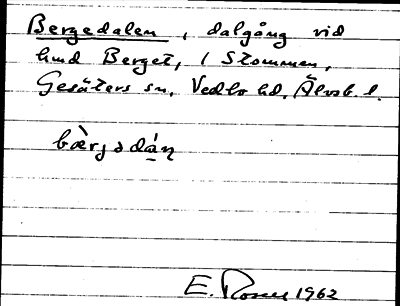 Bergedalen, dalgång vid
hmd Berget, 1 Stommen,
Gesäters sn, Vedbo hd, Älvsb. l.
bæ̀rjədán
E. Rosell 1962